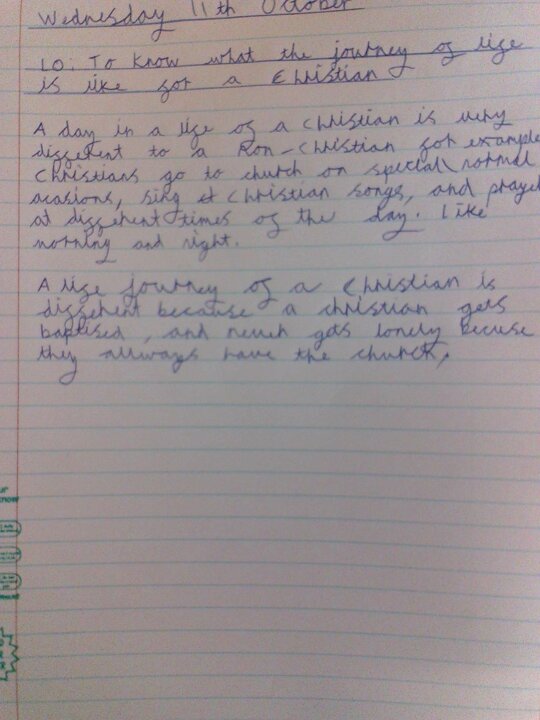 Wednesday 11th October
LO: To know what the journey of life
is like for a Christian
A day in a life of a Christian is very
different to a Non-Christian for example
Christians go to church on special/normal
acasions, sing Christian songs, and prayer
at different times of the day. Like
morning and night.
A life journey of a Christian is
different because a christian gets
baptised, and never gets lonely becuse
they allways have the church.